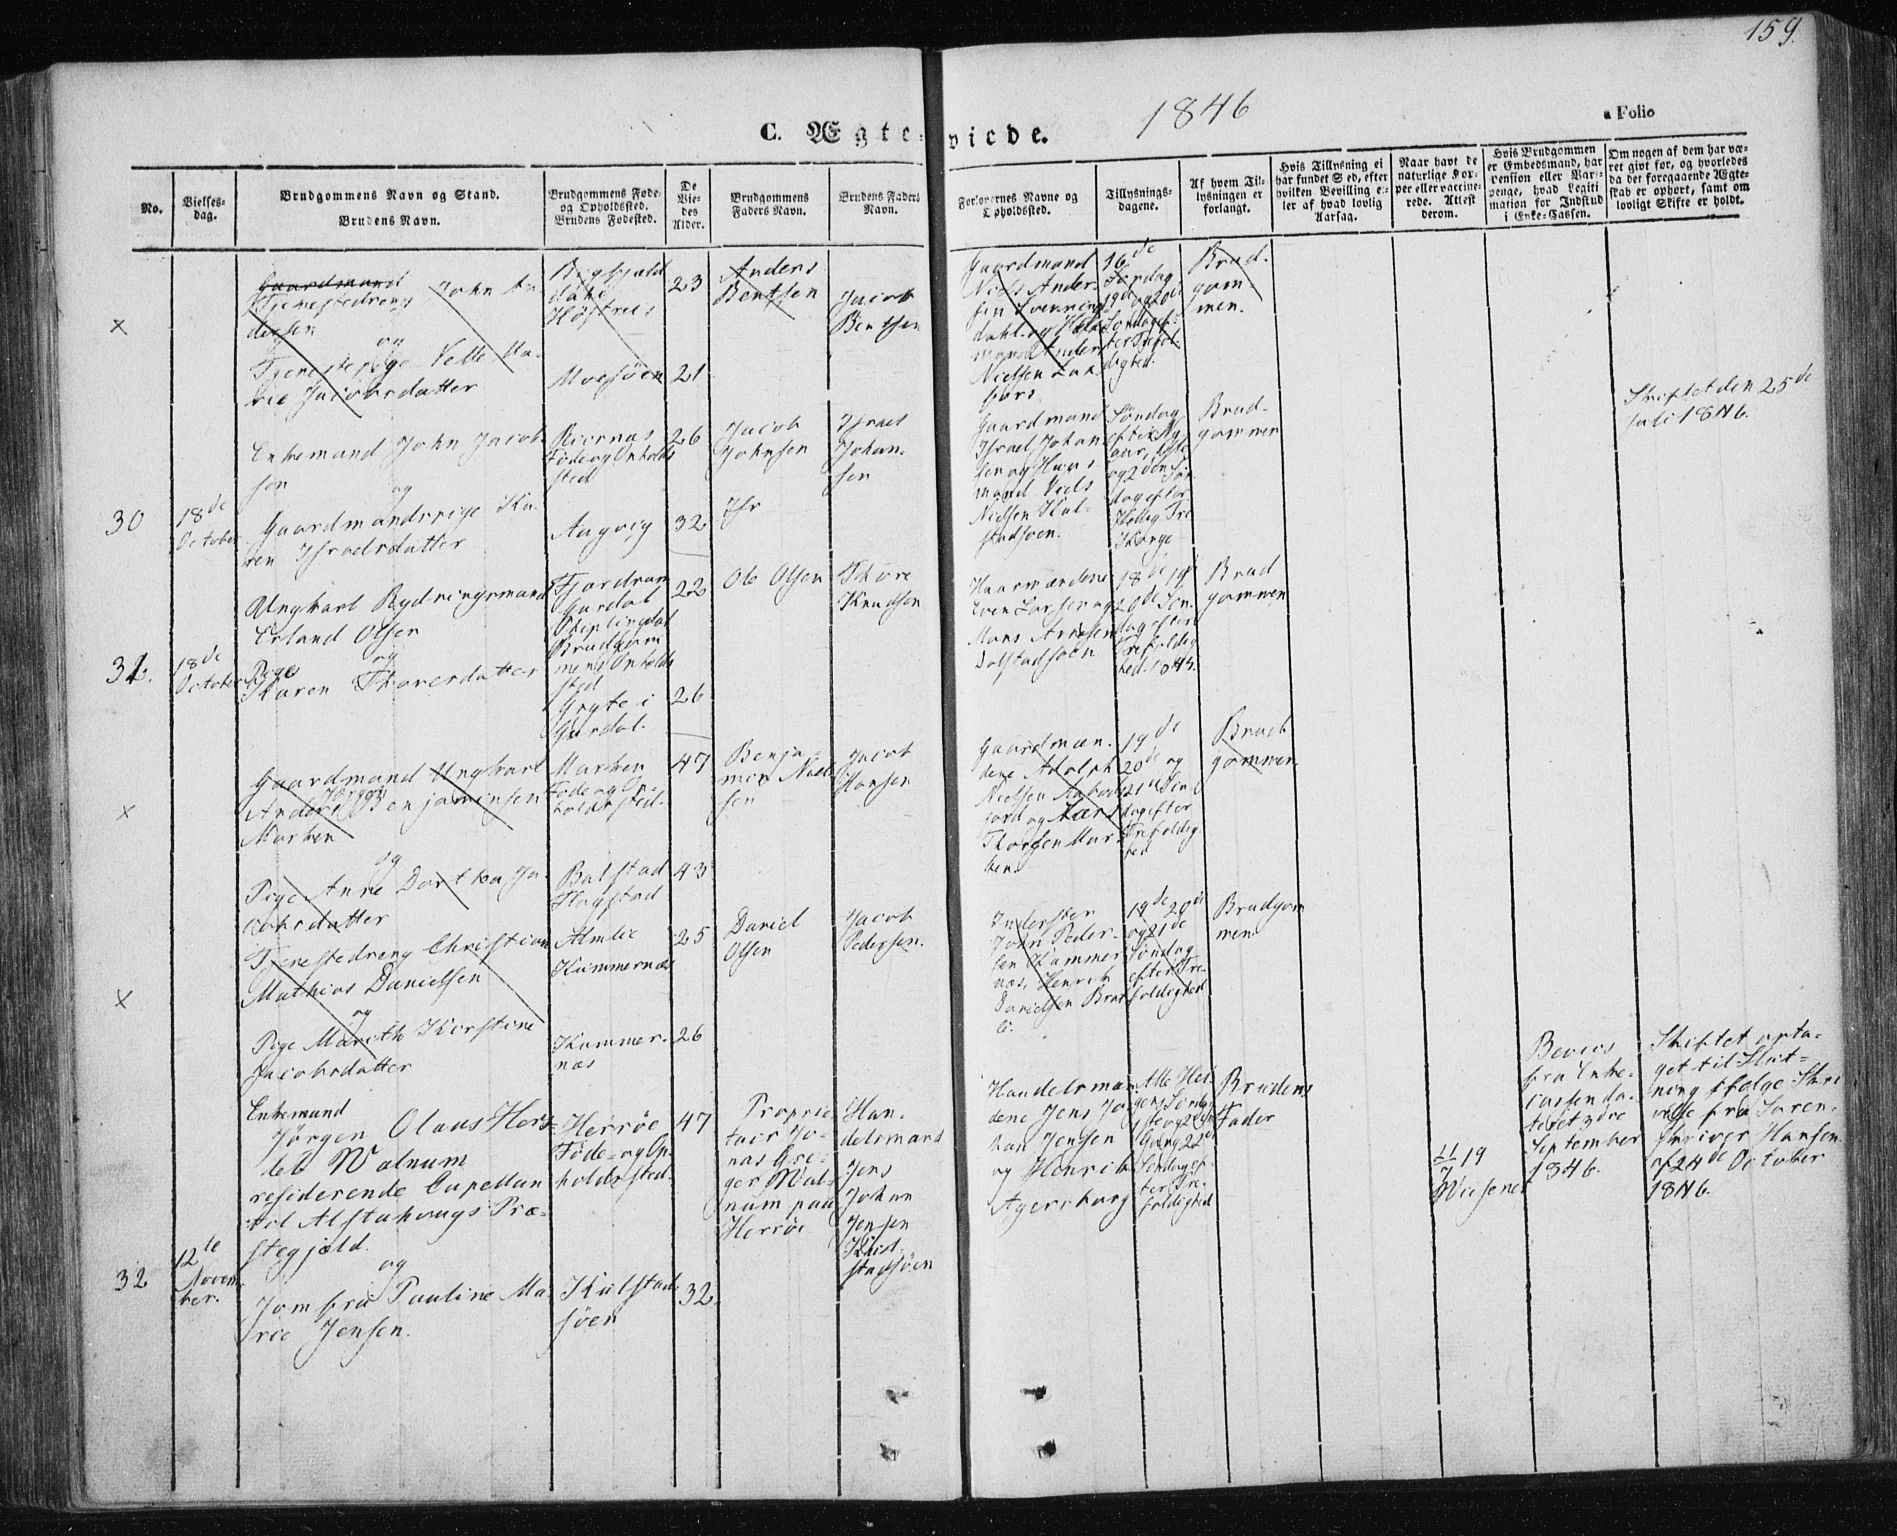 159.
1846
a Folio
C. Ægte-viede.
No.
Vielses-
dag.
Brudgommens Navn og Stand.
Brudens Navn.
Brudgommens Føde-
og Opholdssted.
Brudens Fødested.
De
Vie-
des
Alder.
Brudgommens
Faders Navn.
Brudens Faders
Navn.
Forlovernes Navne og
Opholdssted.
Tillysnings-
dagene.
Af hvem Til-
lysningen er
forlangt.
Hvis Tillysning ei
har fundet Sted, efter
hvilken Bevilling el-
ler af hvad lovlig
Aarsag.
Naar havt de
naturlige Kop-
per eller vaccine-
rede. Attest
derom.
Hvis Brudgommen
er Embedsmand, har
Pension eller Var-
penge, hvad Legiti
mation for Indskud
i Enke-Cassen.
Om nogen af dem har væ-
ret gift før, og hvorledes
da det foregaaende Ægte-
skab er ophørt, samt om
lovligt Skifte er holdt.
x
Gaardmand
Tjenestedreng John An
dersen
og
Tjenestepige Ma-
rie Jacobsdatter
Høstrees
Moesøen
23
21
Anders
Bentsen
Jacob
Bentsen
Gaardmand
Niels Ander-
sen Svennings
dahl og
mand Anders
Nielsen Lax
fors
16de
Søndag
19de og 20de
Søndag ef-
ter Trefol-
dighed.
Brud-
gom-
men.
30
18de
October
Enkemand John Jacob
sen
og
Gaardmandspige Ka-
ren Israelsdatter
Føde og Opholds
sted
Aagvig
26
32
Jacob
Johnsen
Isr
Israel
Johan-
sen
Gaardmand
Israel Johan
sen og Huus
mand Niels
Nielsen Kul-
stadsøen.
Søndag
efter Ny
aar, 1ste
og 2den Søn
dag efter
Hellig Tre
Konge
Brud-
gommen
Skiftet den 25de
Juli 1846.
31.
18de
October
Ungkarl Rydningsmand
Erland Olsen
og
Pige
Karen Thoresdatter
Fjordram
Gardal
Brudgom
mens Opholds
sted
Gryte i
Gardal.
22
26
Ole Olsen
Thore
Knudsen
Huusmændene
Even Larsen og
Mons Arntsen
Dolstadsøen
18de 19de
20de Søn-
dag efter
Trefoldig
hed. 1845.
Brud
gommen
x
Gaardmand Ungkarl
Jørgen
Anders Benjaminsen
Marken
og
Pige Anne Dorthea Ja-
cobsdatter
Marken
Føde og Op-
holdssted.
Balstad
Hagstad
47
43
Benja-
min Niel
sen
Jacob
Hansen
Gaardmæn-
dene Adolph
Nielsen
fjord og Lars
Thorsen Mar
ken.
19de
20de og
21de Søn
dag efter
Trefoldig
hed
Brud-
gommen
x
Tjenestedreng Christian
Mathias Danielsen
og
Pige Mareth Kirstine
Jacobsdatter
Almlie
Kummernæs
Kummer-
næs
25
26
Daniel
Olsen
Jacob
Pedersen.
Inderster
John Peder-
sen Kummer
næs, Henrik
Danielsen Brat
li.
19de 20de
og 21de
Søndag
efter Tre-
foldighed
Brudgom
men
32
12te
Novem
ber.
Enkemand
Jørgen Olaus Hers-
leb Walnum
residerende Capellan
til Alstahougs Præ-
stegjæld.
og
Jomfru Pauline Ma-
rie Jensen.
Herrøe
Føde- og Op-
holdssted.
Kulstad-
søen
47
32.
Proprie-
tair Jo-
nas Gre-
ger Wal-
num paa
Herrøe
Han-
delsmand
Jens
Johan
Jensen
Kul-
stadsøen
Handelsmæn
dene Jens Jo-
han Jensen
og Henrik
Agersborg
Alle Hel-
gens Sønd
1ste og 2den
Gang 22de
Søndag ef-
ter Tre-
foldighed
Brudens
Fader
11/7 19
Wiesener
Beviis
fra Enke-
cassen da-
teret 3die
September
1846.
Skiftet opta-
get til Slut-
ning ifølge Skri
velse fra Soren-
skriver Hansen
af 24de October
1846.